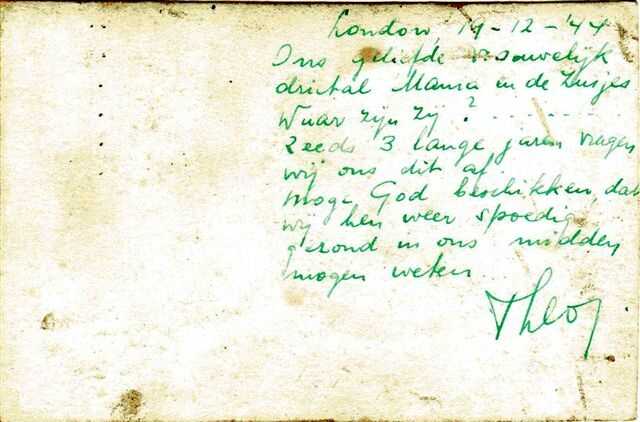 London, 19-12-'44
Ons geliefde vrouwelijk
drietal Mama en de Zusjes
Waar zijn zij? . . . . . . .
Reeds 3 lange jaren vragen
wij ons dit af
moge God beschikken, dat
wij hen weer spoedig
gezond in ons midden
mogen weten
Theo